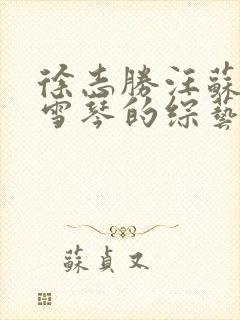 徐志勝汪蘇
雪琴的綜藝
蘇貞又